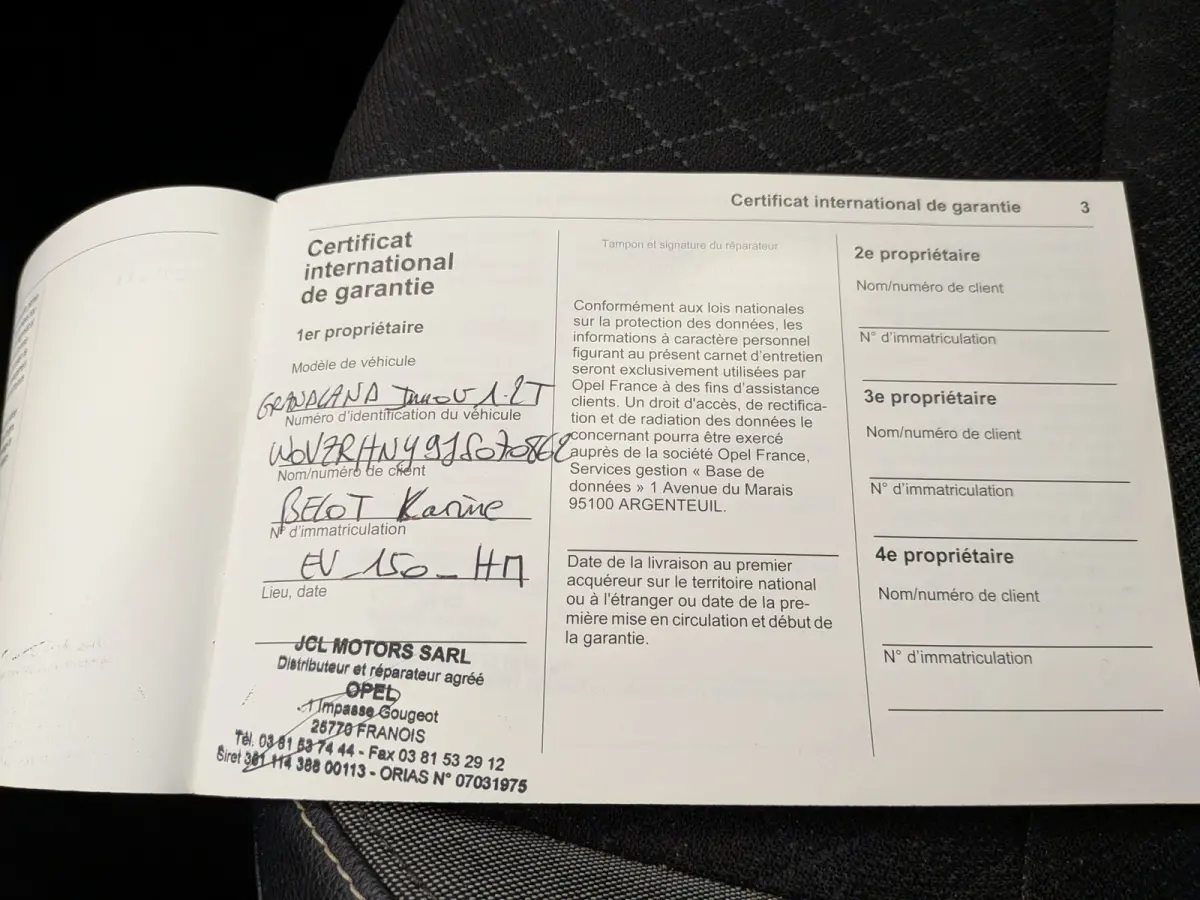 Certificat international de garantie 3
Certificat
international
de garantie
1er propriétaire
Modèle de véhicule
GRANDLAND Innov 1.2T
Numéro d'identification du véhicule
W0VZRHNY9JS070862
Nom/numéro de client
BELOT Karine
N° d'immatriculation
EV-150-HM
Lieu, date
JCL MOTORS SARL
Distributeur et réparateur agréé
OPEL
1 Impasse Gougeot
25770 FRANOIS
Tél. 03 81 53 74 44 - Fax 03 81 53 29 12
Siret 381 114 388 00113 - ORIAS N° 07031975
Tampon et signature du réparateur
Conformément aux lois nationales
sur la protection des données, les
informations à caractère personnel
figurant au présent carnet d'entretien
seront exclusivement utilisées par
Opel France à des fins d'assistance
clients. Un droit d'accès, de rectifica-
tion et de radiation des données le
concernant pourra être exercé
auprès de la société Opel France,
Services gestion « Base de
données » 1 Avenue du Marais
95100 ARGENTEUIL.
Date de la livraison au premier
acquéreur sur le territoire national
ou à l'étranger ou date de la pre-
mière mise en circulation et début de
la garantie.
2e propriétaire
Nom/numéro de client
N° d'immatriculation
3e propriétaire
Nom/numéro de client
N° d'immatriculation
4e propriétaire
Nom/numéro de client
N° d'immatriculation